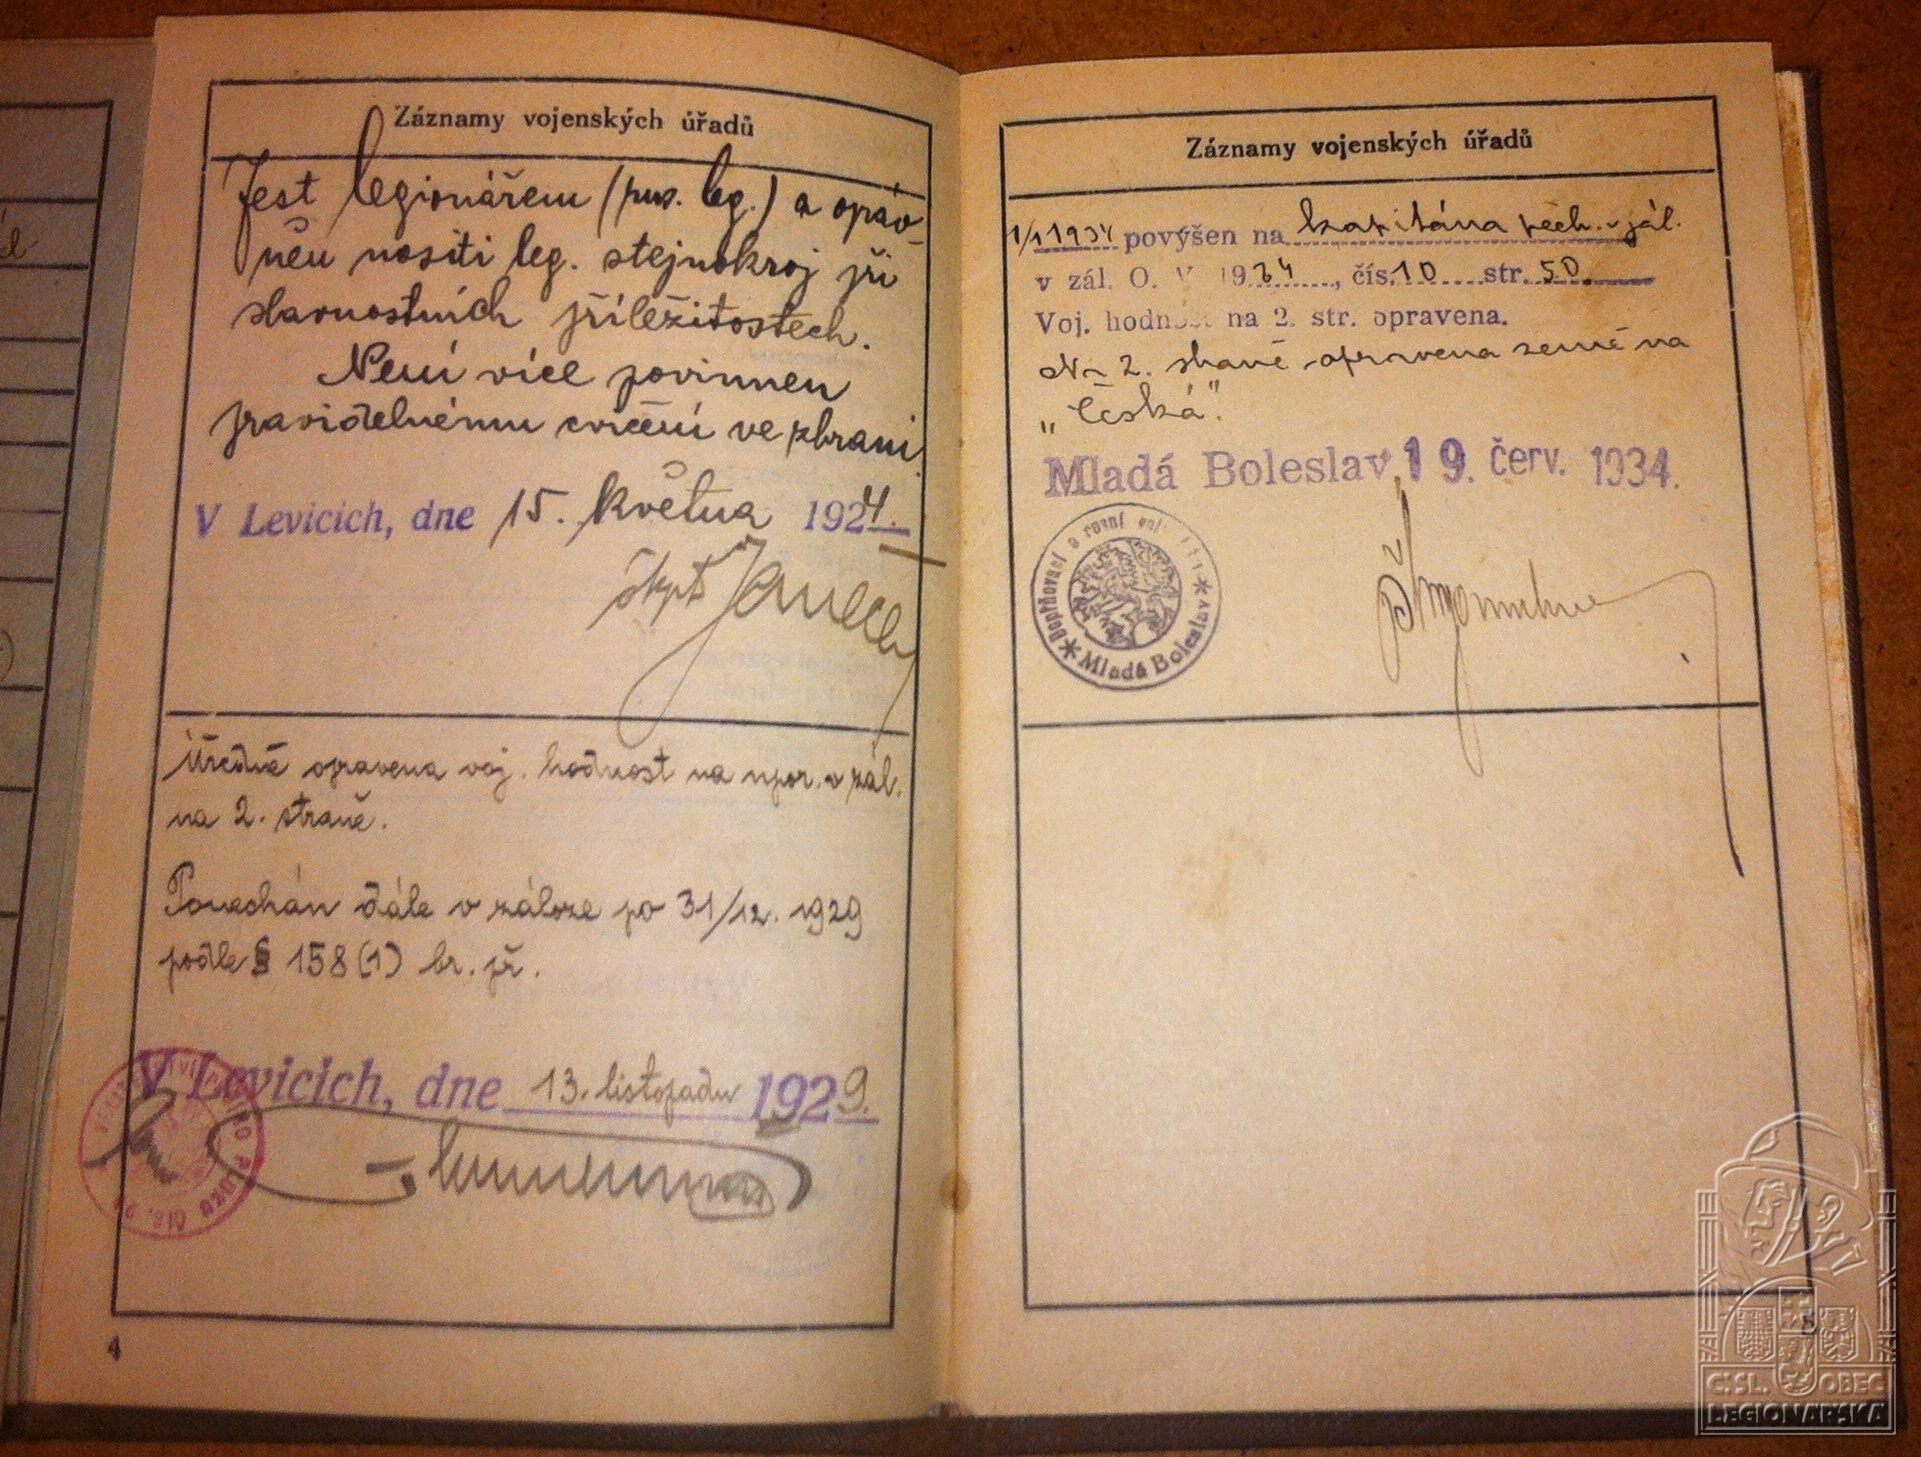 Záznamy vojenských úřadů
Jest legionářem (rus. leg.) a opráv-
něn nositi leg. stejnokroj při
slavnostních příležitostech.
Není více povinnen
pravidelnému cvičení ve zbrani.
V Levicích, dne 15. května 1924.
škpt
Úředně opravena voj. hodnost na npor. v zál.
na 2. straně.
Ponechán dále v záloze po 31/12. 1929
podle § 158 (1) br. př.
V Levicích, dne 13. listopadu 1929.
PLUKU ČÍS.
4
Záznamy vojenských úřadů
1/1 1934 povýšen na kapitána pěch. v zál.
v zál. O. V 1934, čís. 10 str. 50
Voj. hodnost na 2. str. opravena.
Na 2. straně opravena země na
„Česká".
Mladá Boleslav, 19. červ. 1934.
Doplňovací
Mladá Boleslav
5
Č.SL. OBEC
LEGIONÁŘSKÁ